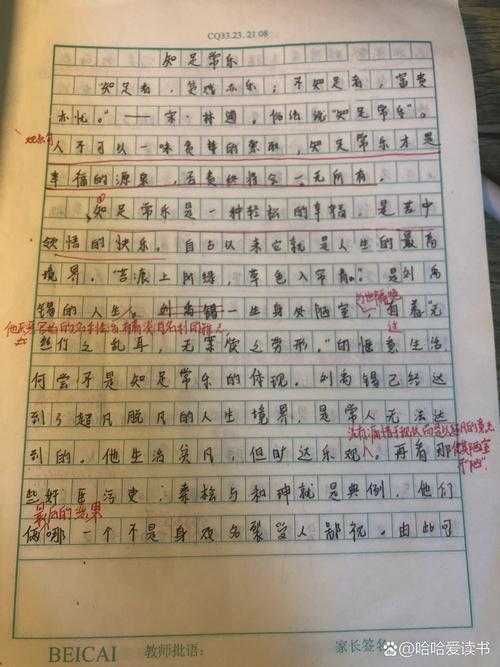 CQ33.23.2108
知足常乐
"知足者,贫贱亦乐;不知足者,富贵
亦忧。"——宋·林逋,俗话说"知足常乐"。
人不可以一味贪婪的索取,知足常乐才是
幸福的源泉,否贵终将会一无所有。
知足常乐是一种轻松的幸福,是苦中
领悟的快乐。自古以来它就是人生的最高
境界。"苔痕上阶绿,草色入帘青。"是刘禹
锡的人生。刘禹锡一生身处陋室,有着"无
丝竹之乱耳,无案牍之劳形。"的惬意生活
何尝不是知足常乐的体现。刘禹锡已经达
到了超凡脱凡的人生境界,是常人无法达
到的。他生活贫凡,但旷达乐观。再看那
些奸臣污吏:秦桧与和珅就是典例。他们
最后的结果
俩哪一个不是身败名裂受人鄙视。由此可
BEICAI 教师批语: 家长签名
@哈哈爱读书